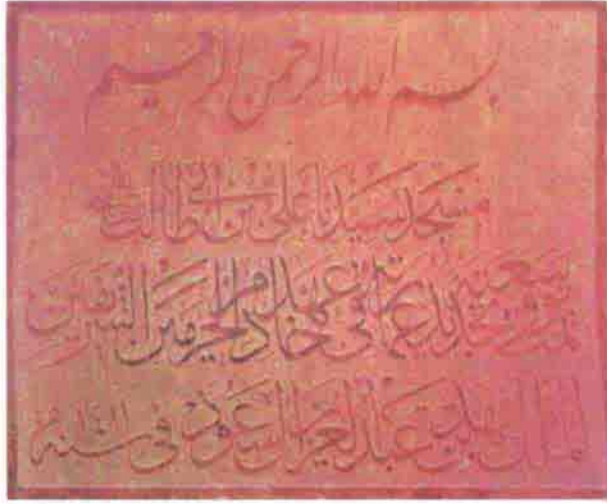 بسم الله الرحمن الرحيم
مسجد سيدنا علي بن ابي طالب
تمت توسعته وتجديد عمارته في عهد خادم الحرمين الشريفين
الملك فهد بن عبد العزيز آل سعود في سنة ١٤١١